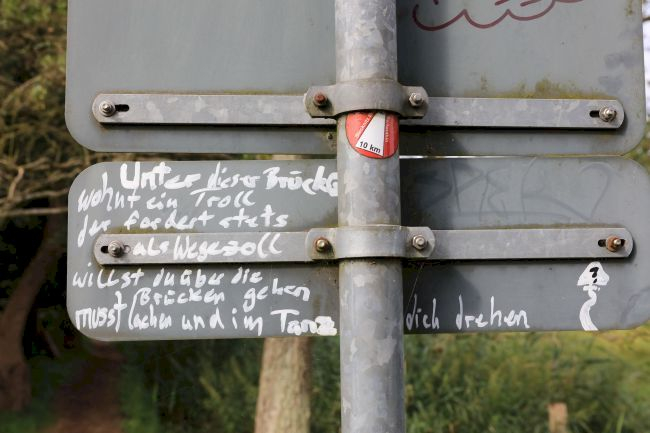 10 km
Unter dieser Brücke
wohnt ein Troll
der fordert stets
als Wegezoll
willst du über die
Brücken gehen
musst lachen und im Tanz dich drehen